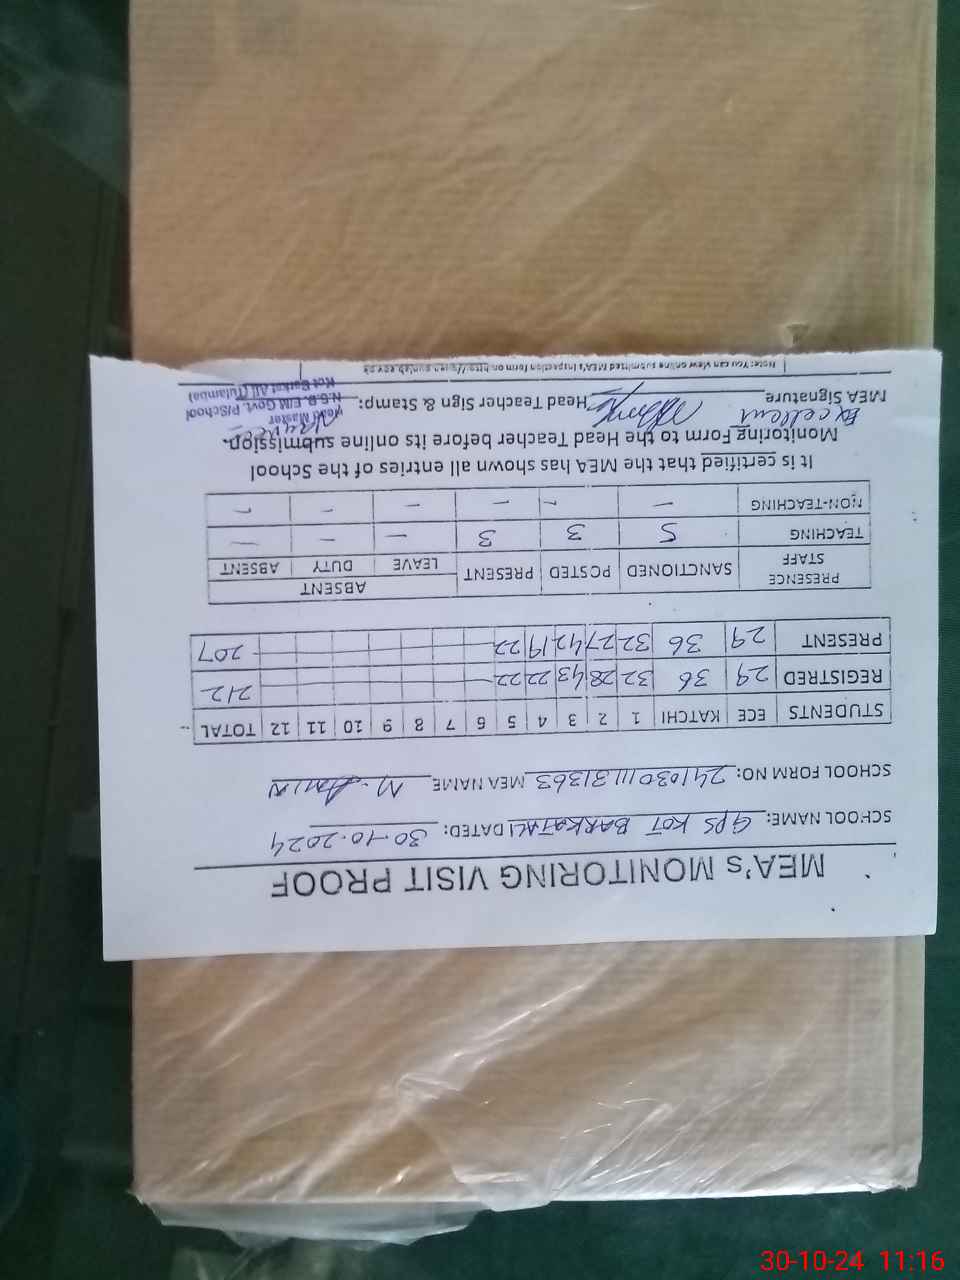 MEA's MONITORING VISIT PROOF
SCHOOL NAME: GPS KOT BARKATALI DATED: 30-10-2024
SCHOOL FORM NO: 24103011131363 MEA NAME M. Amin
STUDENTS ECE KATCHI 1 2 3 4 5 6 7 8 9 10 11 12 TOTAL
REGISTRED 29 36 32 28 43 22 22 212
PRESENT 29 36 32 27 42 19 22 207
PRESENCE STAFF SANCTIONED POSTED PRESENT ABSENT
LEAVE DUTY ABSENT
TEACHING 5 3 3 — — —
NON-TEACHING — — — — — —
It is certified that the MEA has shown all entries of the School
Monitoring Form to the Head Teacher before its online submission.
Excellent
MEA Signature Head Teacher Sign & Stamp:
Head Master
N.G.B. E/M Govt. P/School
Kot Barkat Ali (Tulamba)
Note: You can view online submitted MEA's inspection form on
30-10-24 11:16